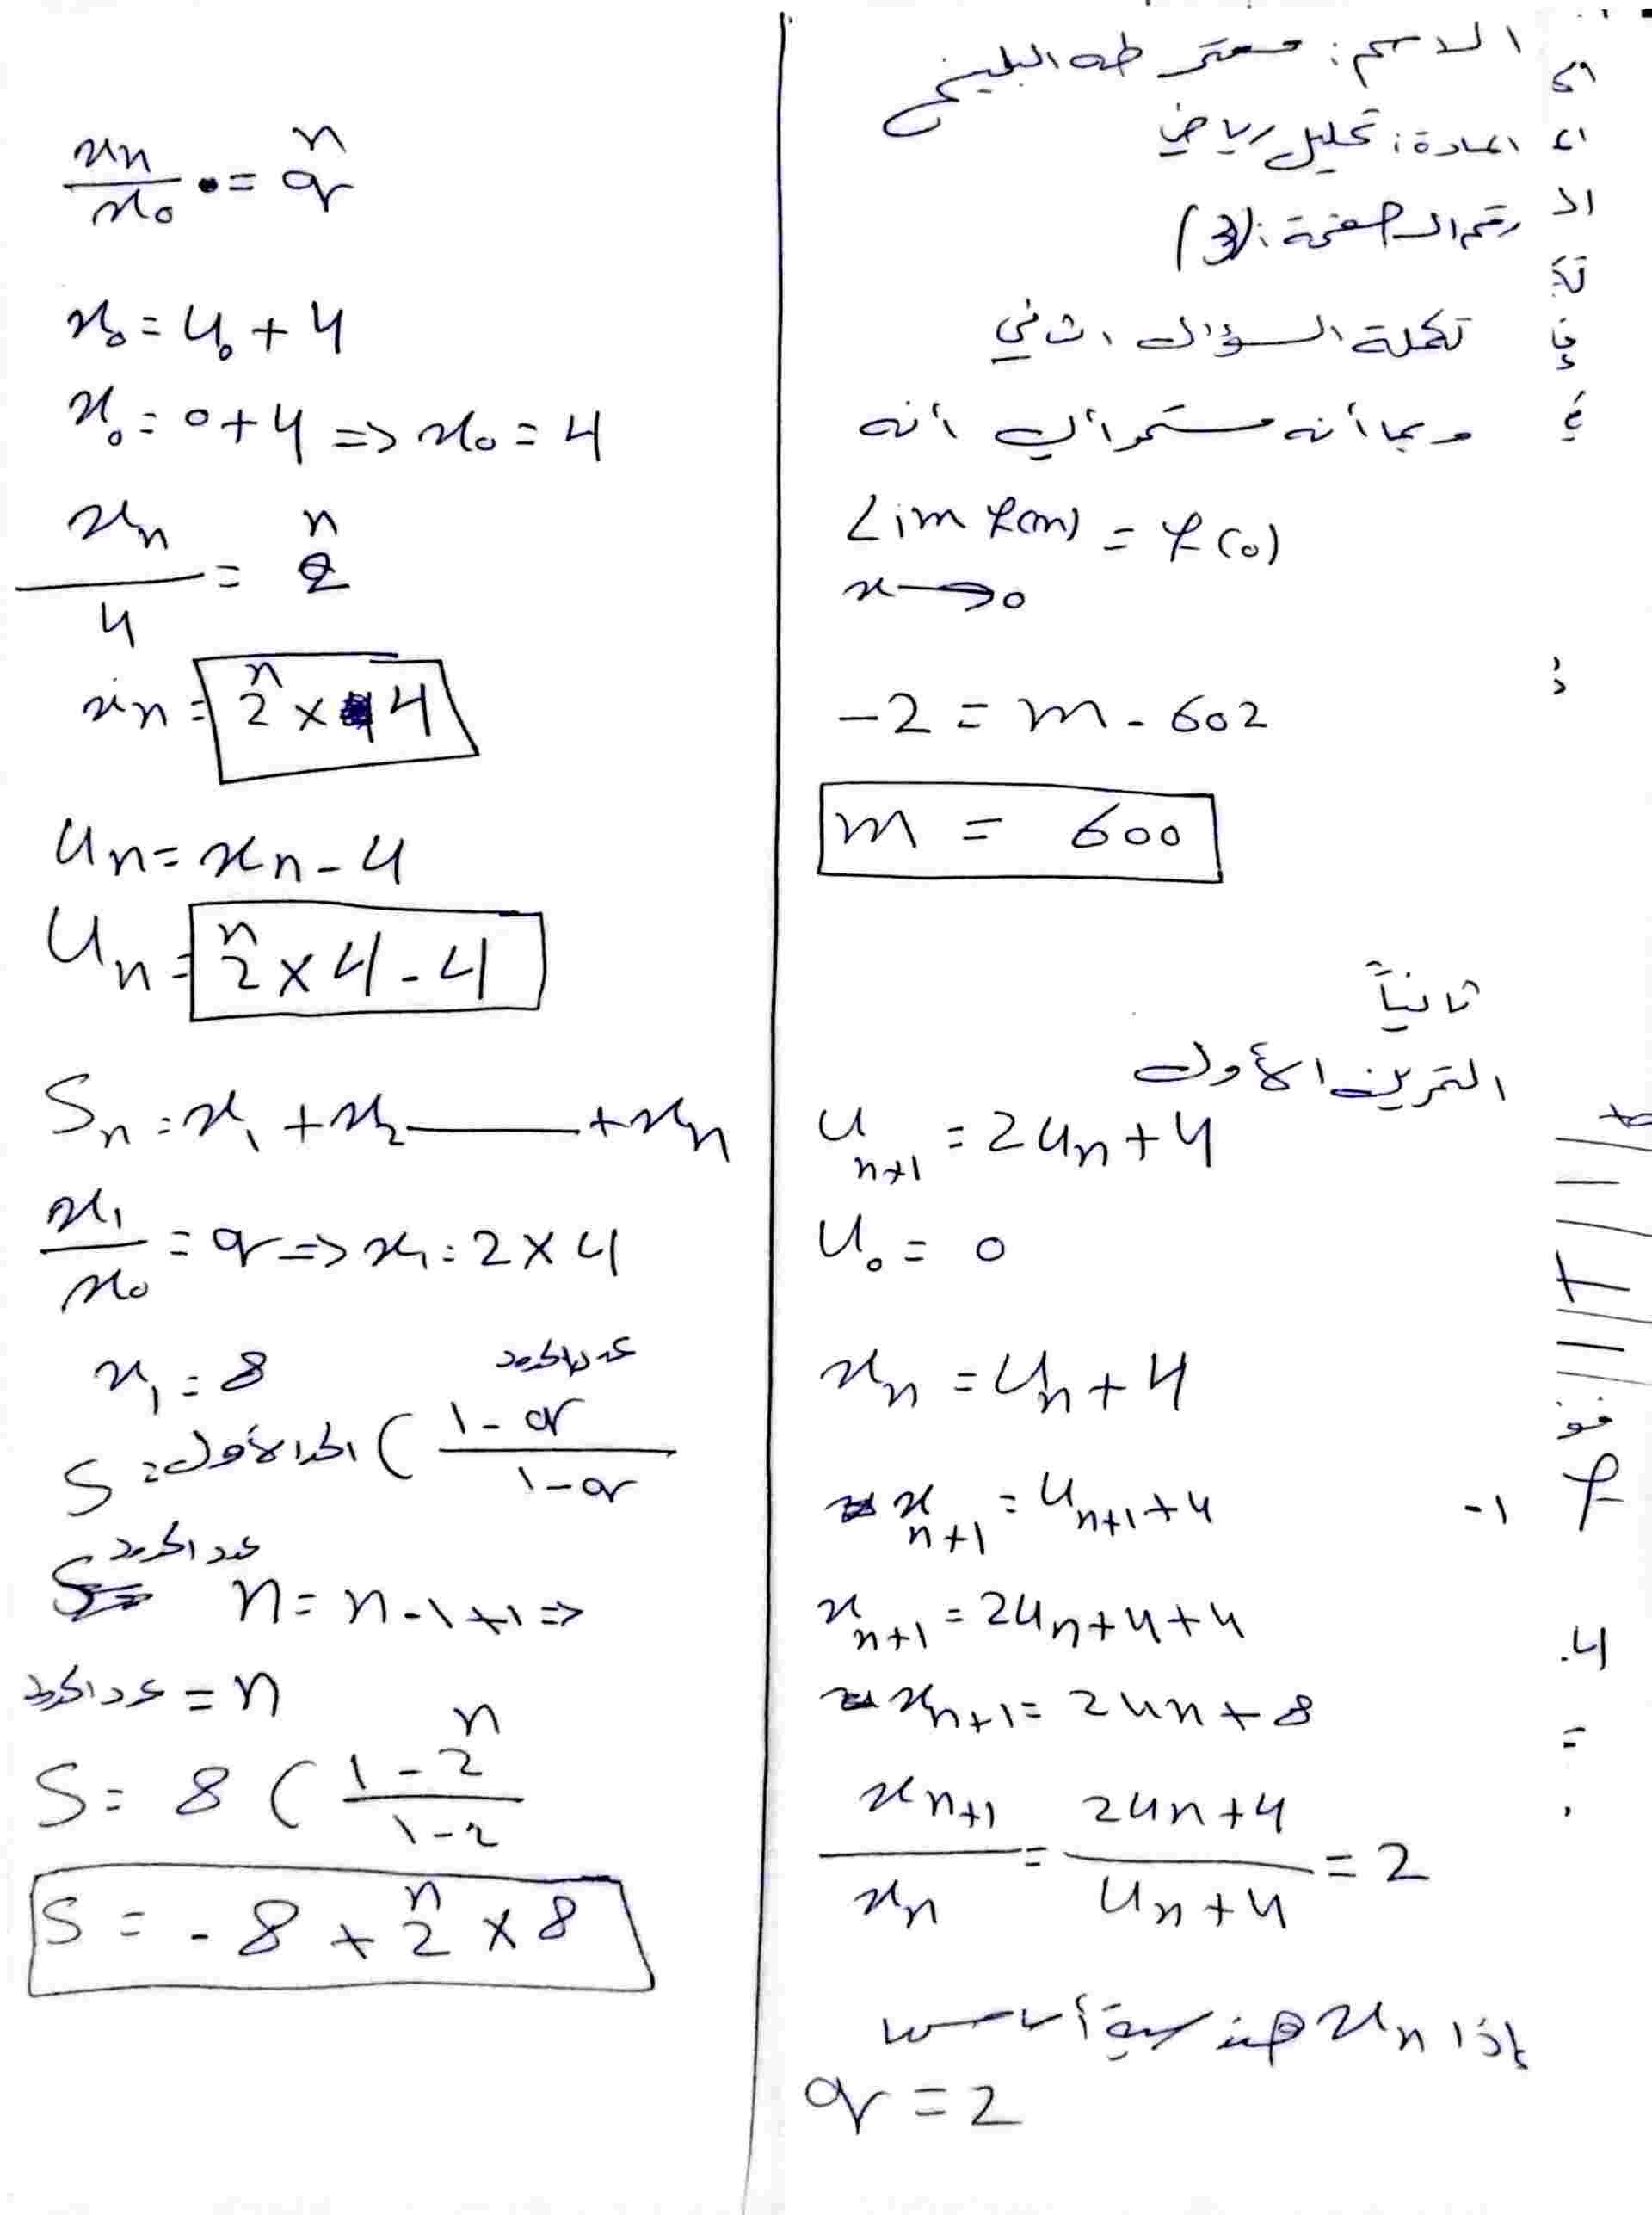 الاسم: معتز طه البليخي
المادة: تحليل رياضي
رقم الصفحة: (3)
تكملة السؤال الثاني
وبما أنه مستمر أي أنه
Lim f(x) = f(0)
x → 0
-2 = m - 602
m = 600
ثانياً
التمرين الأول
u_{n+1} = 2u_n + 4
u_0 = 0
x_n = u_n + 4
-1 x_{n+1} = u_{n+1} + 4
x_{n+1} = 2u_n + 4 + 4
x_{n+1} = 2u_n + 8
x_{n+1} / x_n = (2u_n + 4) / (u_n + 4) = 2
إذا x_n هندسية أساسها
q = 2
x_n / x_0 = q^n
x_0 = u_0 + 4
x_0 = 0 + 4 => x_0 = 4
x_n / 4 = 2^n
x_n = 2^n × 4
u_n = x_n - 4
u_n = 2^n × 4 - 4
S_n = x_1 + x_2 ——— + x_n
x_1 / x_0 = q => x_1 = 2 × 4
x_1 = 8
عدد الحدود
S = الحد الأول ( 1 - q / 1 - q
عدد الحدود
n = n - 1 + 1 =>
عدد الحدود = n
S = 8 ( 1 - 2^n / 1 - 2
S = -8 + 2^n × 8